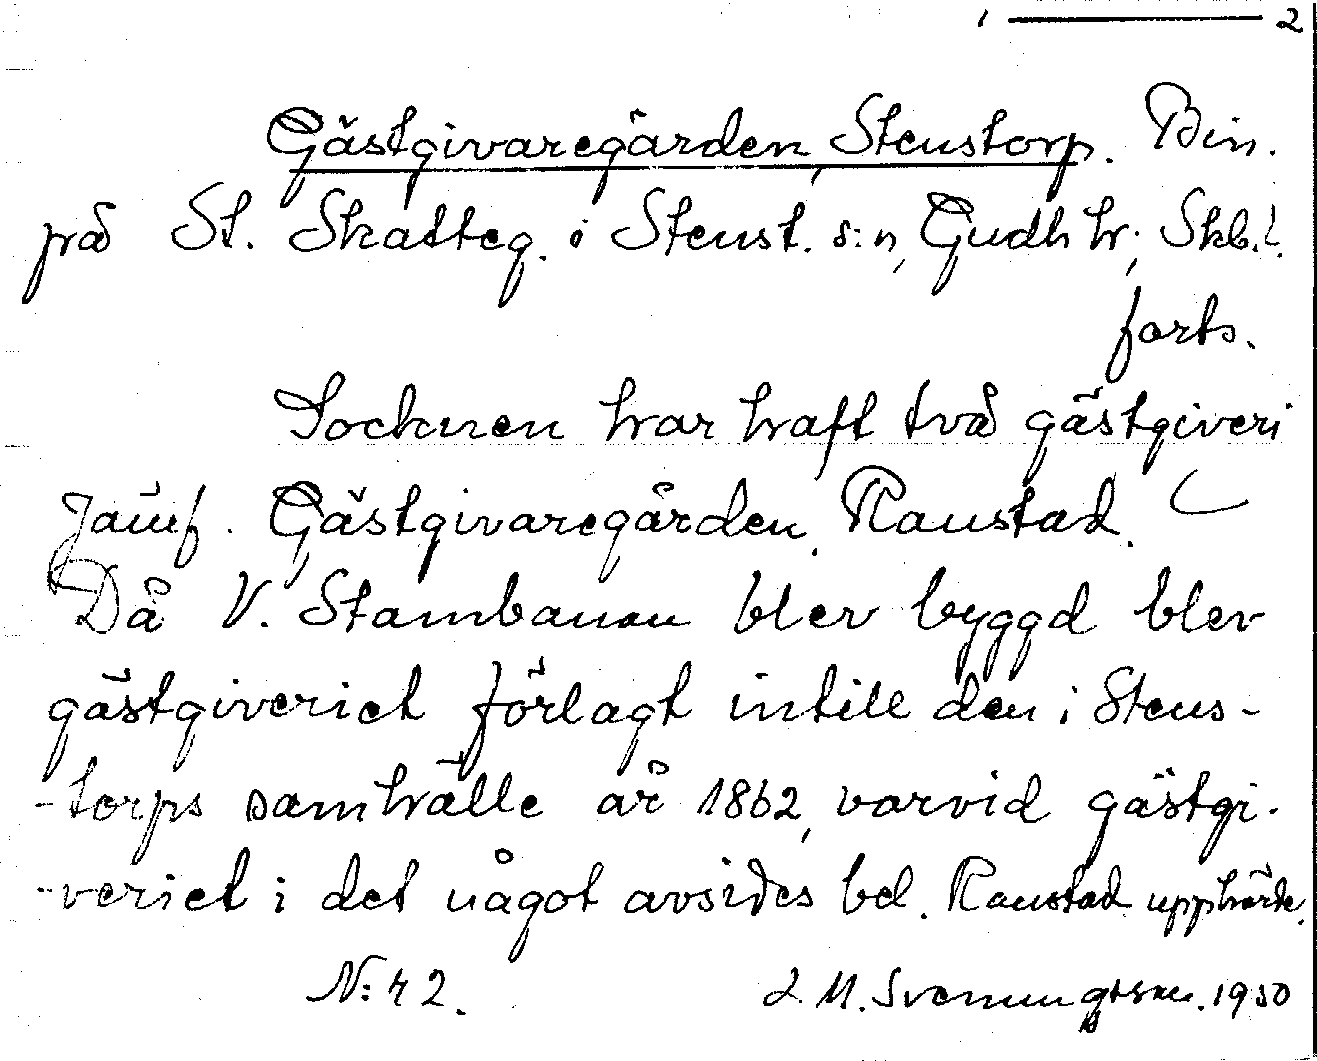 1 — 2
Gästgivaregården, Stenstorp. Bin.
på St. Skatteg. i Stenst. s:n, Gudh hr; Skb.l.
forts.
Socknen har haft två gästgiveri
Jämf. Gästgivaregården, Ranstad.
Då V. Stambanan blev byggd blev
gästgiveriet förlagt intill den i Stens-
-torps samhälle år 1862, varvid gästgi-
-veriet i det något avsides bel. Ranstad upphörde.
N:42. L. M. Svenungsson. 1930